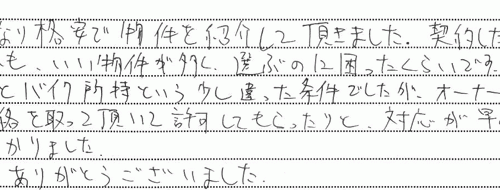 なり格安で物件を紹介して頂きました。契約した
も、いい物件が多く、選ぶのに困ったくらいです
とバイク所持という少し違った条件でしたが、オーナー
絡を取って頂いて許可してもらったりと、対応が早
かりました。
ありがとうございました。